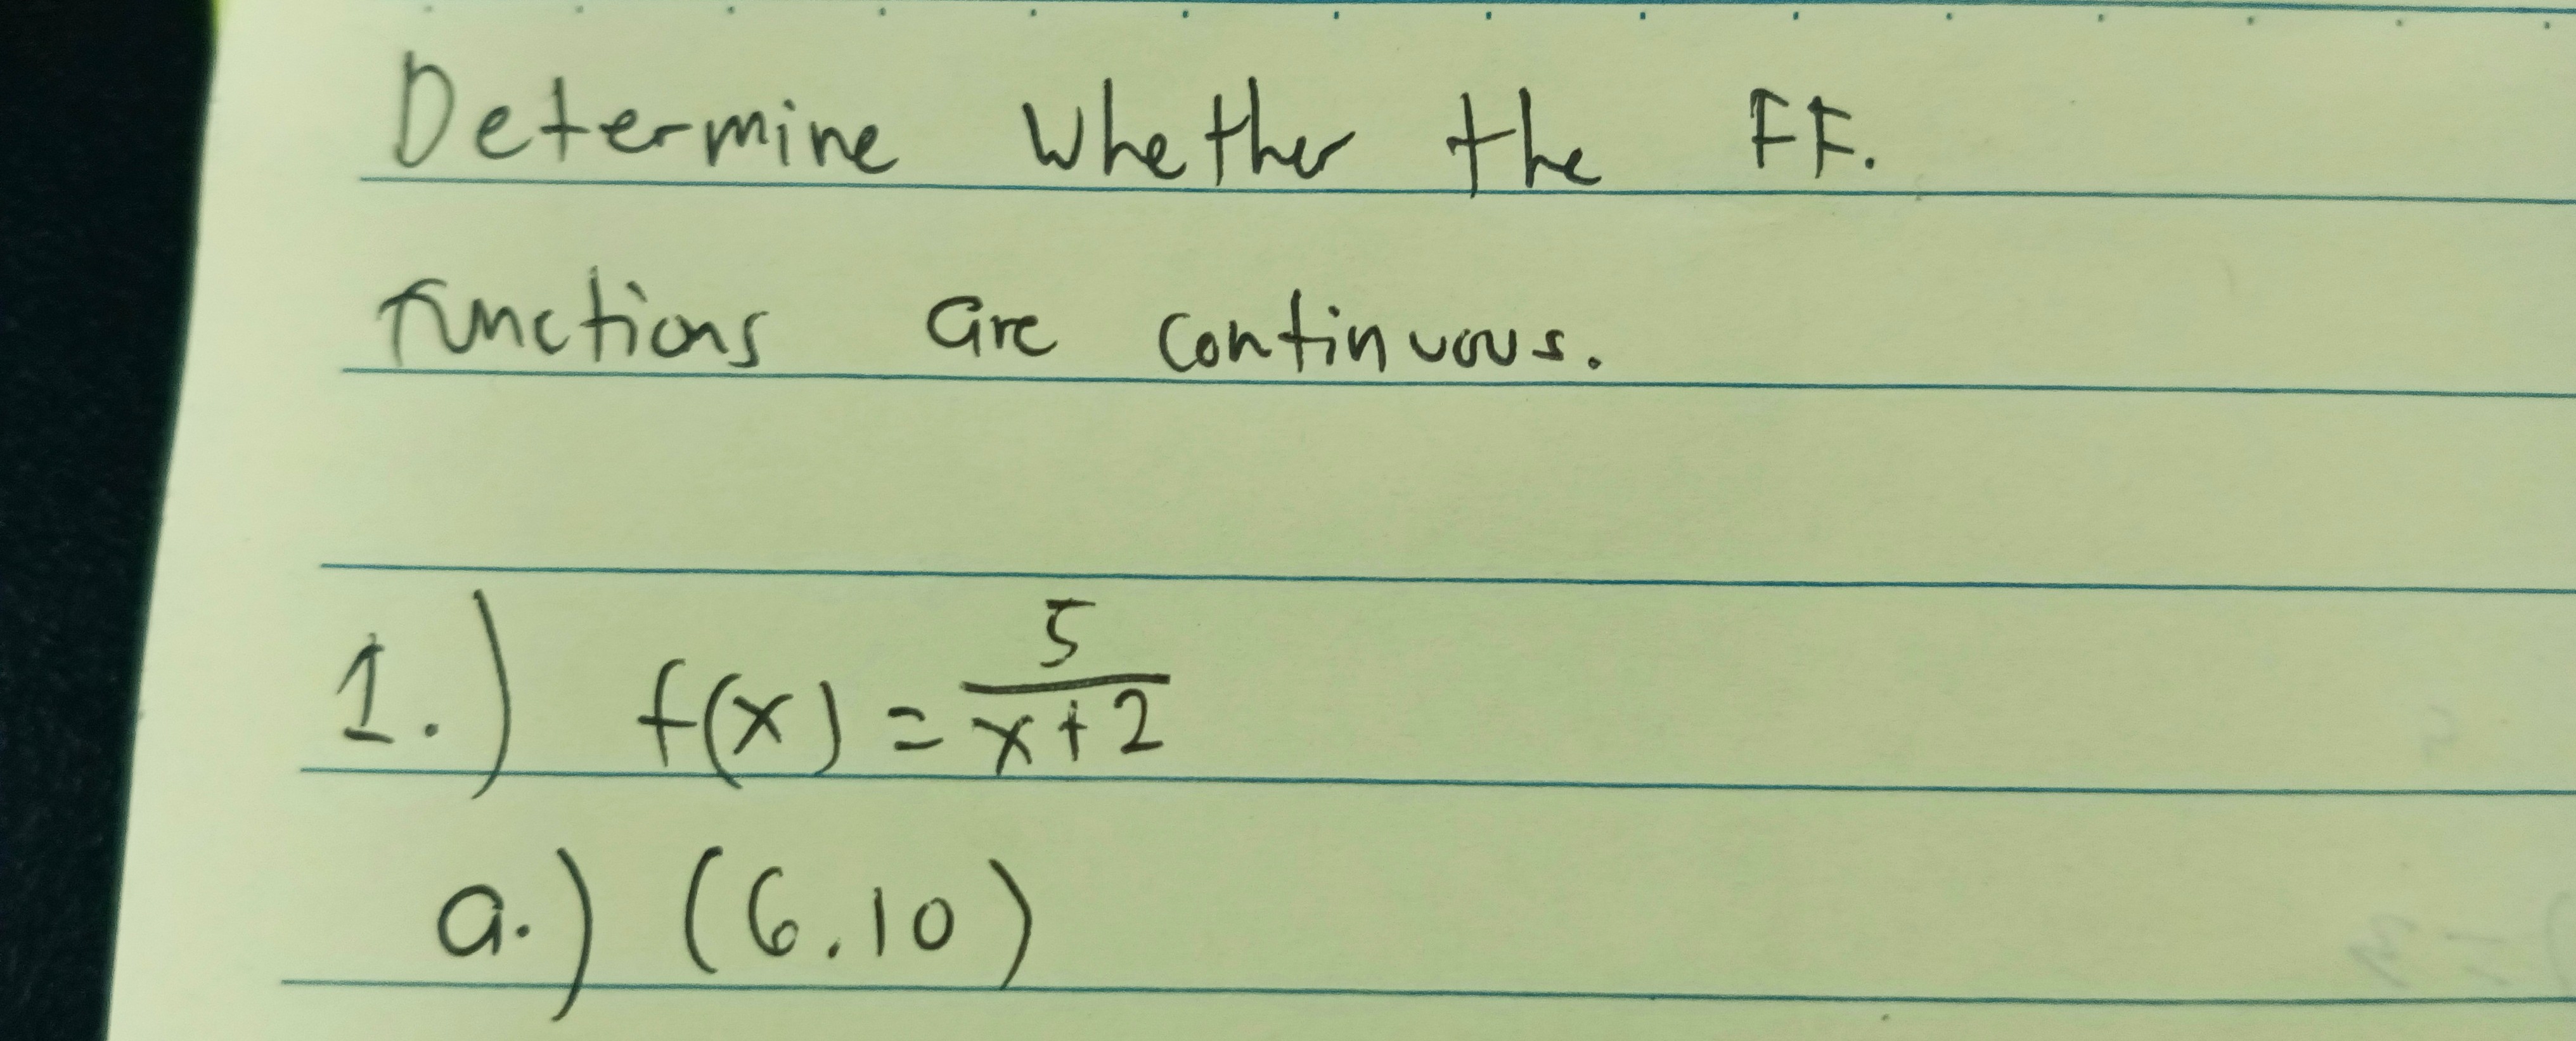 Determine whether the FF.
functions are continuous.
1.) f(x) = 5/(x+2)
a.) (6.10)